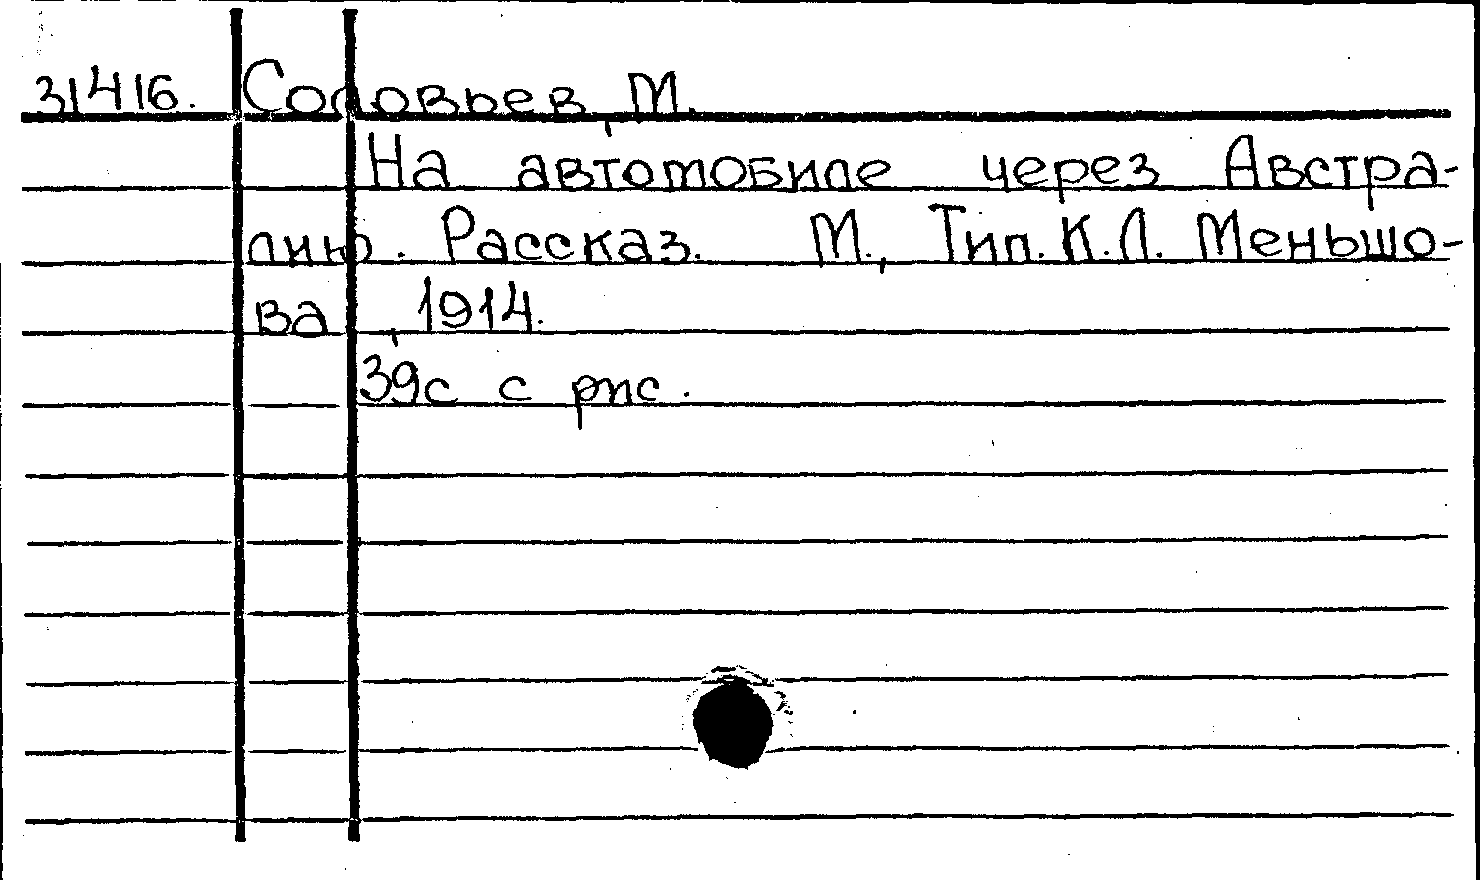 31416. Соловьев, М.
На автомобиле через Австра-
лию. Рассказ. М., Тип. К.Л. Меньшо-
ва, 1914.
39с с рис.